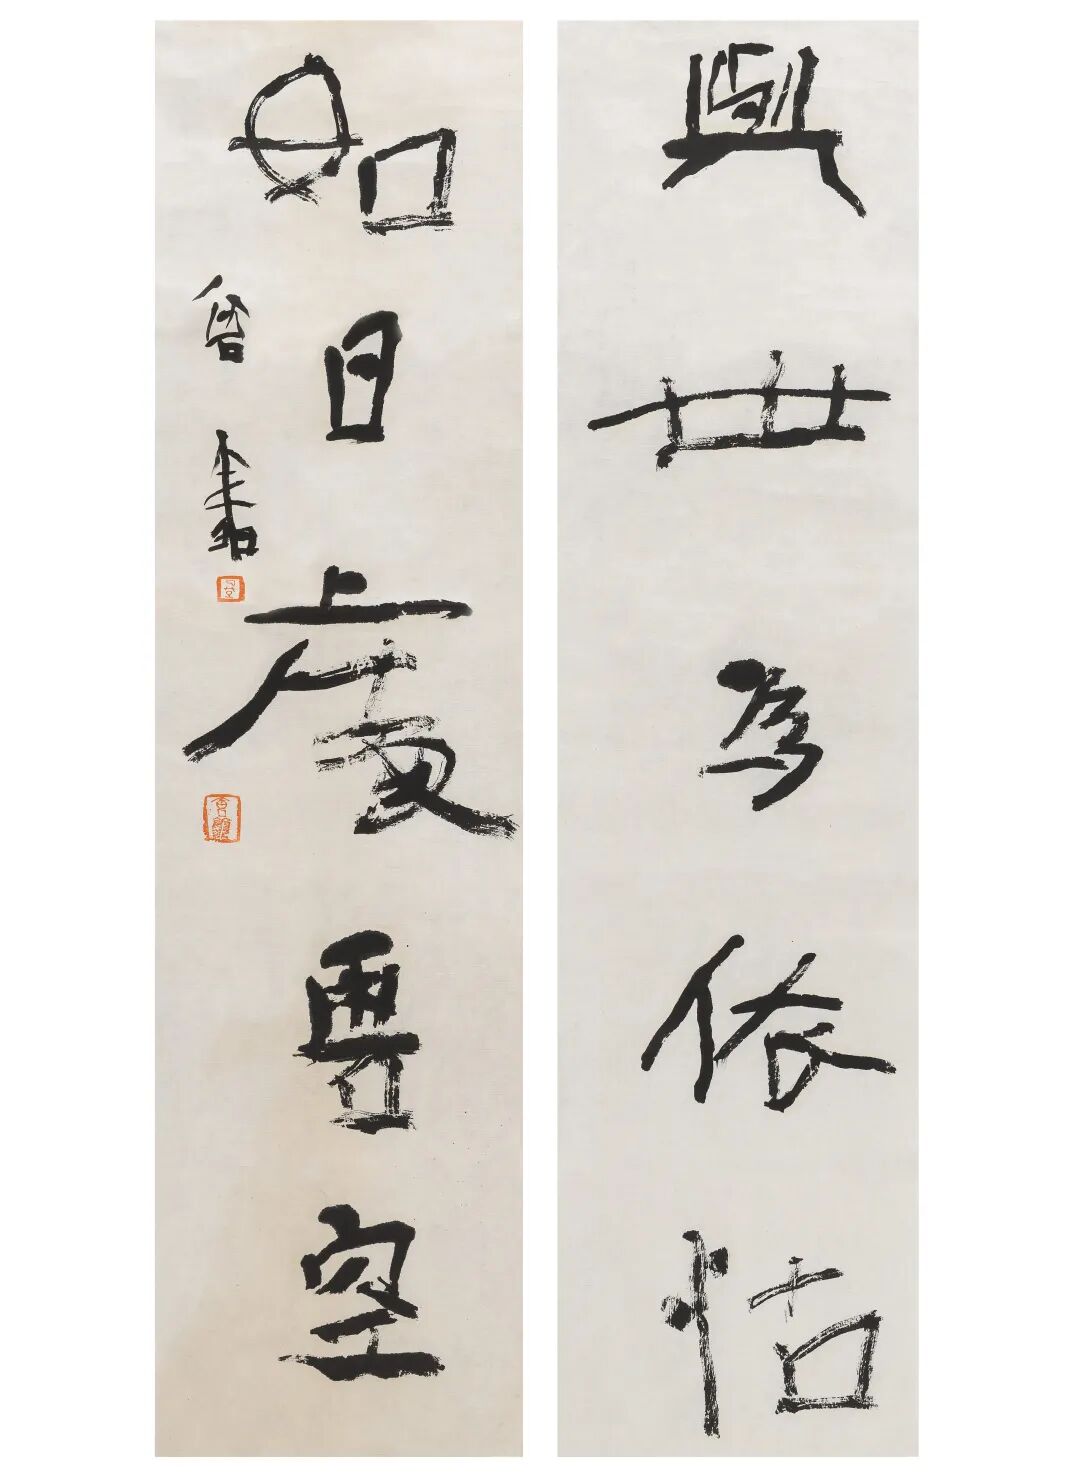 與世為依怙
如日處虛空
書